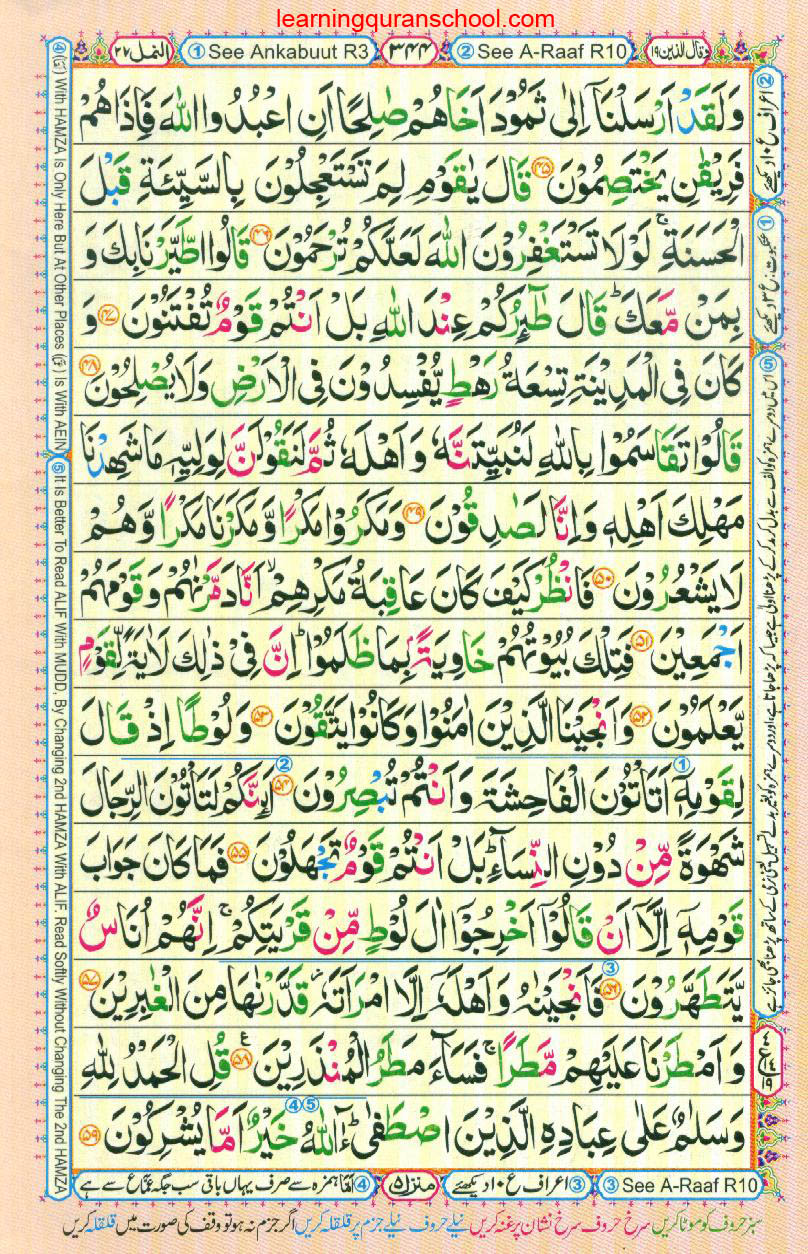 learningquranschool.com
وقال الذین ١٩
② See A-Raaf R10
٣٤٤
① See Ankabuut R3
النمل ٢٧
وَلَقَدْ اَرْسَلْنَاۤ اِلٰى ثَمُوْدَ اَخَاهُمْ صٰلِحًا اَنِ اعْبُدُوا اللّٰهَ فَاِذَا هُمْ
فَرِيْقٰنِ يَخْتَصِمُوْنَ ﴿۴۵﴾ قَالَ يٰقَوْمِ لِمَ تَسْتَعْجِلُوْنَ بِالسَّيِّئَةِ قَبْلَ
الْحَسَنَةِ ۚ لَوْلَا تَسْتَغْفِرُوْنَ اللّٰهَ لَعَلَّكُمْ تُرْحَمُوْنَ ﴿۴۶﴾ قَالُوا اطَّيَّرْنَا بِكَ وَ
بِمَنْ مَّعَكَ ؕ قَالَ طٰٓئِرُكُمْ عِنْدَ اللّٰهِ بَلْ اَنْتُمْ قَوْمٌ تُفْتَنُوْنَ ﴿۴۷﴾ وَ
كَانَ فِى الْمَدِيْنَةِ تِسْعَةُ رَهْطٍ يُّفْسِدُوْنَ فِى الْاَرْضِ وَلَا يُصْلِحُوْنَ ﴿۴۸﴾
قَالُوْا تَقَاسَمُوْا بِاللّٰهِ لَنُبَيِّتَنَّهٗ وَ اَهْلَهٗ ثُمَّ لَنَقُوْلَنَّ لِوَلِيِّهٖ مَا شَهِدْنَا
مَهْلِكَ اَهْلِهٖ وَاِنَّا لَصٰدِقُوْنَ ﴿۴۹﴾ وَمَكَرُوْا مَكْرًا وَّمَكَرْنَا مَكْرًا وَّهُمْ
لَا يَشْعُرُوْنَ ﴿۵۰﴾ فَانْظُرْ كَيْفَ كَانَ عَاقِبَةُ مَكْرِهِمْ ۙ اَنَّا دَمَّرْنٰهُمْ وَقَوْمَهُمْ
اَجْمَعِيْنَ ﴿۵۱﴾ فَتِلْكَ بُيُوْتُهُمْ خَاوِيَةًۢ بِمَا ظَلَمُوْا ؕ اِنَّ فِىْ ذٰلِكَ لَاٰيَةً لِّقَوْمٍ
يَّعْلَمُوْنَ ﴿۵۲﴾ وَاَنْجَيْنَا الَّذِيْنَ اٰمَنُوْا وَكَانُوْا يَتَّقُوْنَ ﴿۵۳﴾ وَلُوْطًا اِذْ قَالَ
لِقَوْمِهٖۤ اَتَاْتُوْنَ الْفَاحِشَةَ وَاَنْتُمْ تُبْصِرُوْنَ ﴿۵۴﴾ اَئِنَّكُمْ لَتَاْتُوْنَ الرِّجَالَ
شَهْوَةً مِّنْ دُوْنِ النِّسَآءِ ؕ بَلْ اَنْتُمْ قَوْمٌ تَجْهَلُوْنَ ﴿۵۵﴾ فَمَا كَانَ جَوَابَ
قَوْمِهٖۤ اِلَّاۤ اَنْ قَالُوْۤا اَخْرِجُوْۤا اٰلَ لُوْطٍ مِّنْ قَرْيَتِكُمْ ۚ اِنَّهُمْ اُنَاسٌ
يَّتَطَهَّرُوْنَ ﴿۵۶﴾ فَاَنْجَيْنٰهُ وَاَهْلَهٗۤ اِلَّا امْرَاَتَهٗ ؗ قَدَّرْنٰهَا مِنَ الْغٰبِرِيْنَ ﴿۵۷﴾
وَ اَمْطَرْنَا عَلَيْهِمْ مَّطَرًا ۚ فَسَآءَ مَطَرُ الْمُنْذَرِيْنَ ﴿۵۸﴾ قُلِ الْحَمْدُ لِلّٰهِ
وَسَلٰمٌ عَلٰى عِبَادِهِ الَّذِيْنَ اصْطَفٰى ؕ ءٰٓاللّٰهُ خَيْرٌ اَمَّا يُشْرِكُوْنَ ﴿۵۹﴾
② اعراف ع ۱۰ دیکھئے
① عنکبوت: ع ۳ دیکھئے
④ (ءَ) With HAMZA Is Only Here But At Other Places (عَ) Is With AEIN
⑤ It Is Better To Read ALIF With MUDD, By Changing 2nd HAMZA With ALIF Read Softly Without Changing The 2nd HAMZA
③ See A-Raaf R10
③ اعراف ع ۱۰ دیکھئے
منزل ۵
④ اَمَّا ہمزہ سے صرف یہاں باقی سب جگہ عَمَّا ع سے ہے
سبز حروف کو موٹا کریں سرخ حروف سرخ نشان پر غنہ کریں نیلے حروف نیلے جزم پر قلقلہ کریں اگر جزم نہ ہو تو وقف کی صورت میں قلقلہ کریں